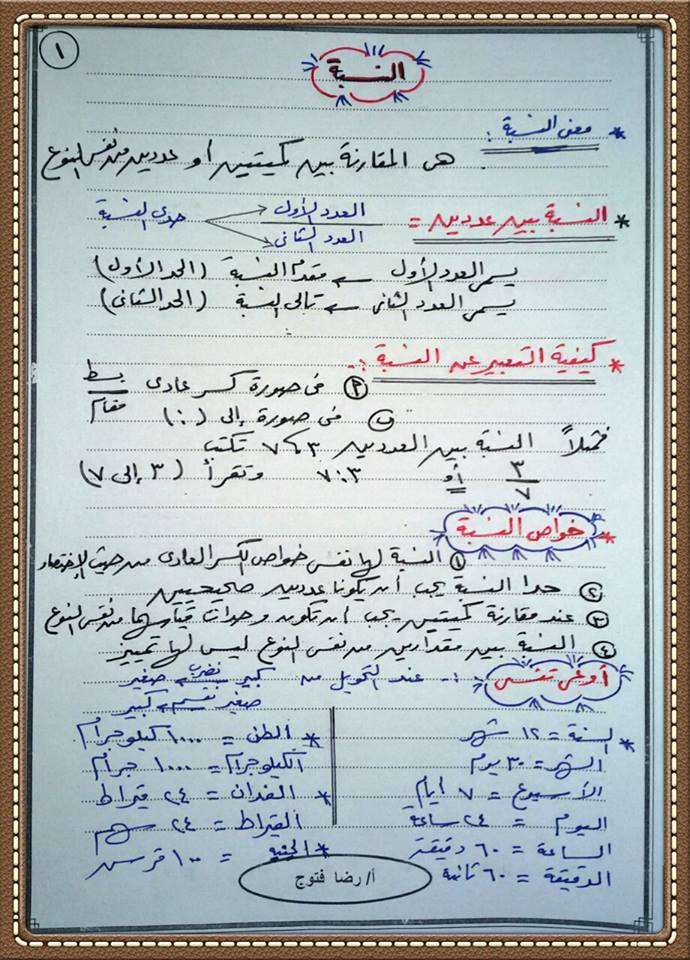 ١
النسبة
* معنى النسبة :
هى المقارنة بين كميتين أو عددين من نفس النوع
* النسبة بين عددين = العدد الأول / العدد الثانى حدى النسبة
يسمى العدد الأول ← مقدم النسبة (الحد الأول)
يسمى العدد الثانى ← تالى النسبة (الحد الثانى)
* كيفية التعبير عن النسبة :-
أ فى صورة كسر عادى بسط / مقام
ب فى صورة إلى (:)
فمثلاً النسبة بين العددين ٣ ، ٧ تكتب
٣/٧ أو ٣:٧ وتقرأ (٣ إلى ٧)
* خواص النسبة
١ النسبة لها نفس خواص الكسر العادى من حيث الإختصار
٢ حدا النسبة يجب أن يكونا عددين صحيحين
٣ عند مقارنة كميتين يجب أن تكون وحدات قياسها من نفس النوع
٤ النسبة بين مقدارين من نفس النوع ليس لها تمييز
أوعى تنسى :- عند التحويل من كبير نضرب ← صغير
صغير نقسم ← كبير
* السنة = ١٢ شهر
الشهر = ٣٠ يوم
الأسبوع = ٧ أيام
اليوم = ٢٤ ساعة
الساعة = ٦٠ دقيقة
الدقيقة = ٦٠ ثانية
* الطن = ١٠٠٠ كيلوجرام
الكيلوجرام = ١٠٠٠ جرام
* الفدان = ٢٤ قيراط
القيراط = ٢٤ سهم
* الجنيه = ١٠٠ قرش
أ/ رضا فتوح